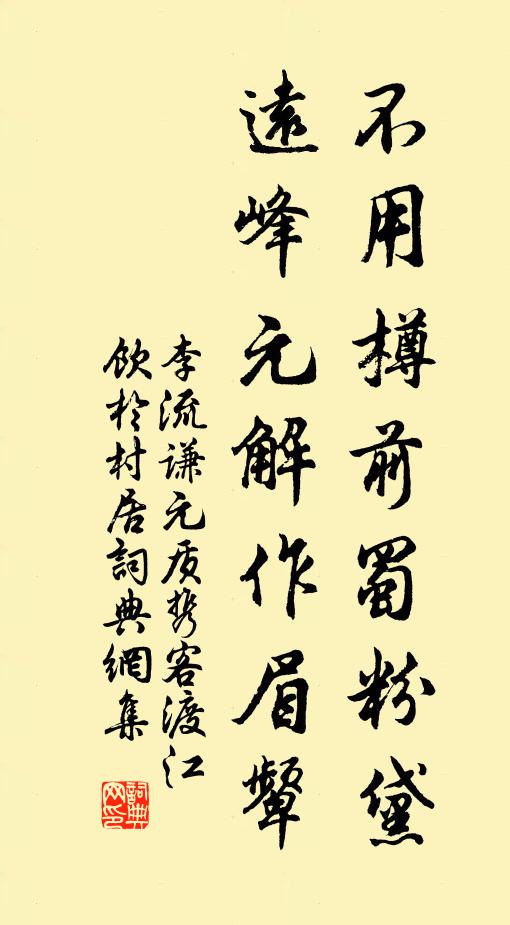 不用樽前蜀粉黛
遠峰元解作眉顰
李流謙元质携客渡江
飲於村居詞典網集
詞典
网印